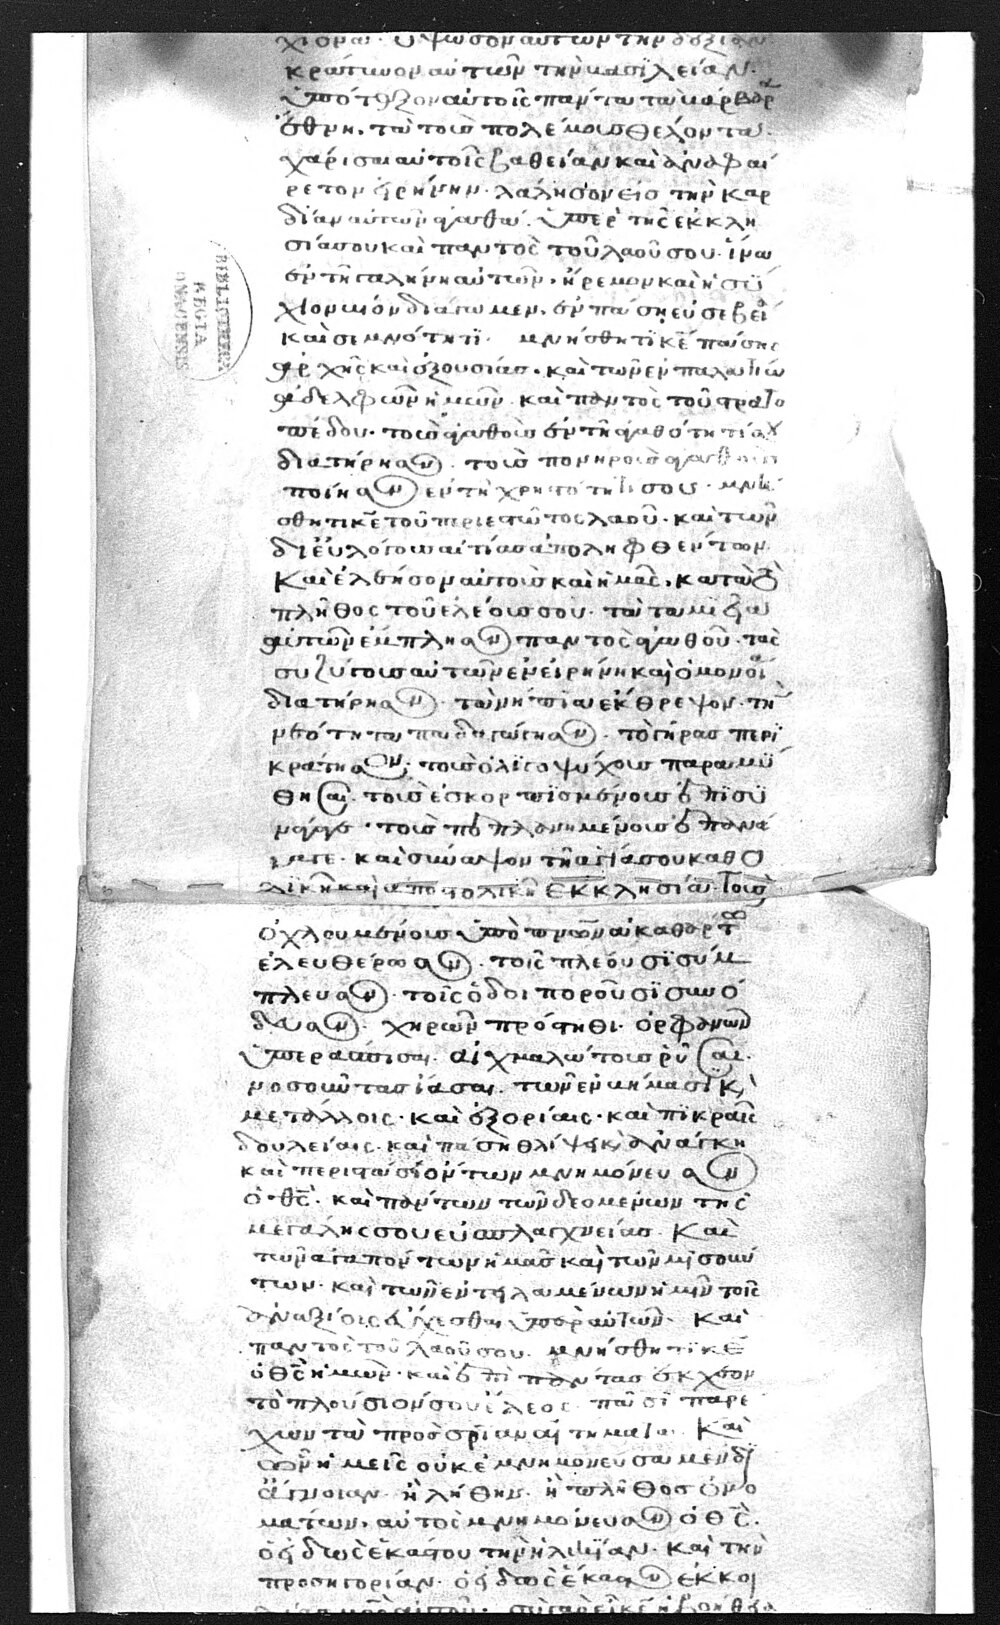 χίονα· ὕψωσον αὐτῶν τὴν δεξιάν
κράτυνον αὐτῶν τὴν βασιλείαν.
ὑπόταξον αὐτοῖς πάντα τὰ βάρβαρ
ἔθνη. τὰ τοὺς πολέμους θέλοντα.
χάρισαι αὐτοῖς βαθείαν καὶ ἀναφαί
ρετον εἰρήνην· λάλησον εἰς τὴν καρ
δίαν αὐτῶν ἀγαθά. ὑπὲρ τῆς ἐκκλη
σίας σου καὶ παντὸς τοῦ λαοῦ σου. ἵνα
ἐν τῇ γαλήνῃ αὐτῶν. ἤρεμον καὶ ἡσύ
χιον βίον διάγωμεν. ἐν πάσῃ εὐσεβεί
καὶ σεμνότητι. μνήσθητι κε πάσης
ἀρχῆς καὶ ἐξουσίας. καὶ τῶν ἐν παλατίω
ἀδελφῶν ἡμῶν. καὶ παντὸς τοῦ στρατο
πέδου· τοὺς ἀγαθοὺς ἐν τῇ ἀγαθότητί σου
διατήρησον. τοὺς πονηροὺς ἀγαθοὺς
ποίησον ἐν τῇ χρηστότητί σου. μνή
σθητι κε τοῦ περιεστῶτος λαοῦ. καὶ τῶν
δι εὐλόγους αἰτίας ἀπολειφθέντων.
Καὶ ἐλέησον αὐτοὺς καὶ ἡμᾶς, κατὰ τὸ
πλῆθος τοῦ ἐλέους σου. τὰ ταμεῖα
αὐτῶν ἔμπλησον παντὸς ἀγαθοῦ. τὰς
συζύγους αὐτῶν ἐν εἰρήνη καὶ ὁμονοί
διατήρησον. τὰ νήπια ἔκθρεψον. τὴν
νεότητα παιδαγώγησον. τὸ γῆρας περι
κράτησον. τοὺς ὀλιγοψύχους παραμυ
θησαι. τοὺς ἐσκορπισμένους ἐπισυ
νάγαγε. τοὺς πεπλανημένους ἐπανά
γαγε. καὶ σύναψον τῇ ἁγία σου καθο
λικῇ καὶ ἀποστολικῇ ἐκκλησία. τοὺς
ὀχλουμένους ὑπὸ πνων ἀκαθάρτ
ἐλευθέρωσον. τοῖς πλέουσι σύμ
πλευσον. τοῖς ὁδοιποροῦσι συνό
δευσον. χηρῶν πρόστηθι. ὀρφανῶν
ὑπεράσπισαι. αἰχμαλώτους ρῦσαι.
νοσοῦντας ἴασαι. τῶν ἐν βήμασι κ
μετάλλοις. καὶ ἐξορίαις. καὶ πικραῖς
δουλείαις. καὶ πάση θλίψει κ ἀνάγκη
καὶ περιστάσει ὄντων μνημόνευσον
ὁ θς. καὶ πάντων τῶν δεομένων τῆς
μεγάλης σου εὐσπλαγχνείας. Καὶ
τῶν ἀγαπόντων ἡμᾶς καὶ τῶν μισούν
των. καὶ τῶν ἐντειλαμένων ἡμῖν τοῖς
ἀναξίοις εὔχεσθαι ὑπὲρ αὐτῶν. Καὶ
παντὸς τοῦ λαοῦ σου. μνήσθητι κε
ὁ θς ἡμῶν. καὶ ἐπὶ πάντας ἔκχεον
τὸ πλούσιόν σου ἔλεος. πᾶσι παρέ
χων τὰ πρὸς σριαν αἰτήματα. Καὶ
ὧν ἡμεῖς οὐκ ἐμνημονεύσαμεν δι
ἄγνοιαν. ἢ λήθην. ἢ πλῆθος ὀνο
μάτων. αὐτὸς μνημόνευσον ὁ θς.
ὁ εἰδὼς ἑκάστου τὴν ἡλικίαν. καὶ τὴν
προσηγορίαν. ὁ εἰδὼς ἕκαστον ἐκ κοι
λίας μρς αὐτοῦ. σὺ γὰρ εἶ κε ἡ βοήθεια